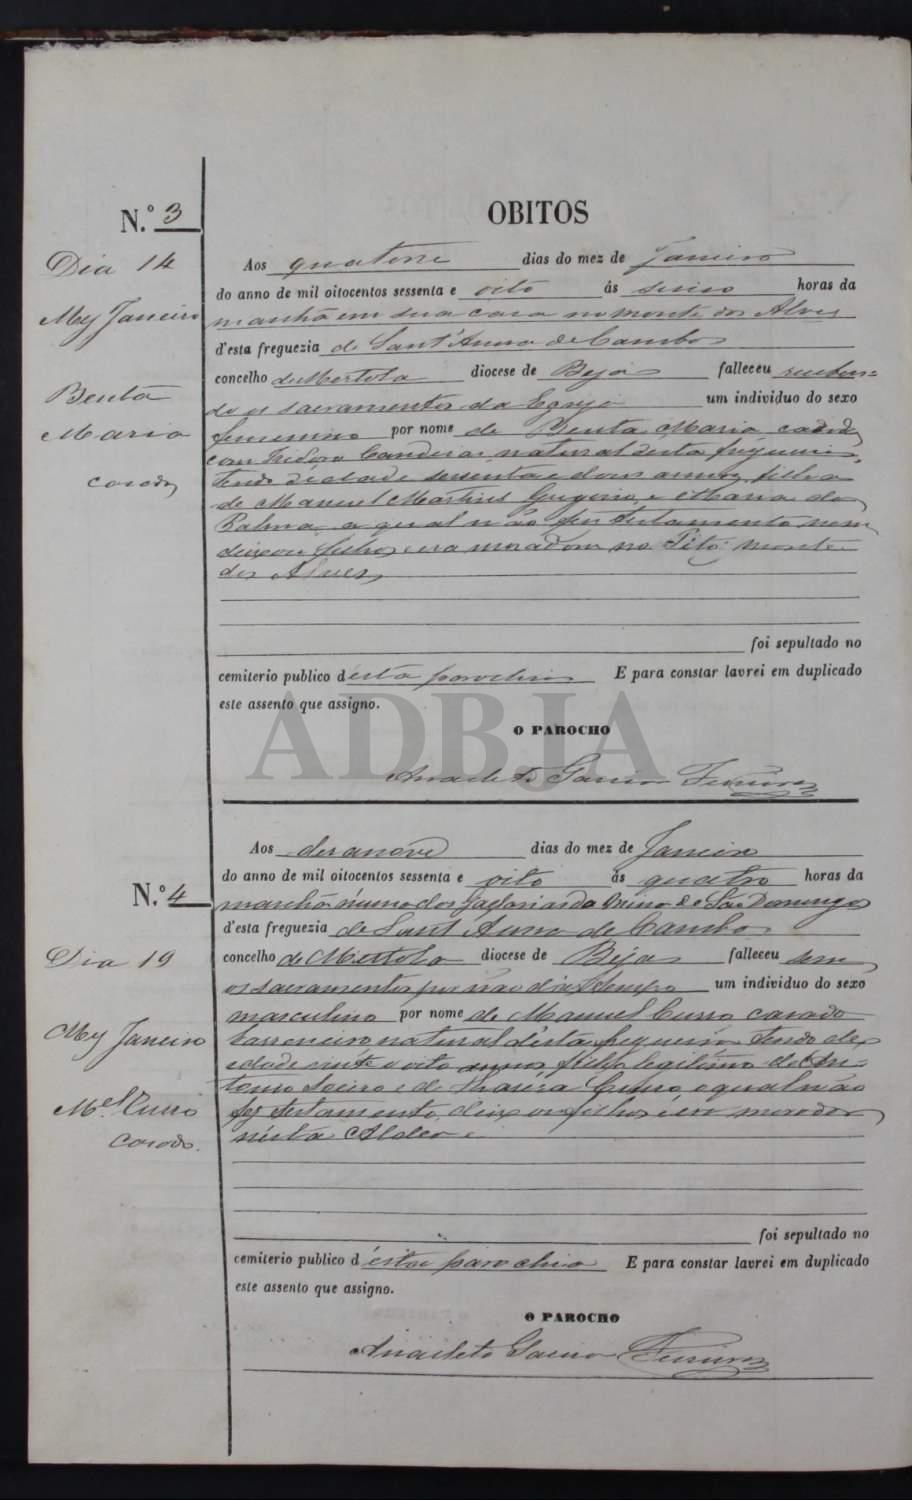 OBITOS
N.º 3
Dia 14
Mez Janeiro
Benta
Maria
casada
Aos quatorze dias do mez de Janeiro
do anno de mil oitocentos sessenta e oito ás horas da
manhã em sua casa no monte dos Alves
d'esta freguezia de Sant'Anna de Cambas
concelho de Mertola diocese de Beja falleceu receben=
do os sacramentos da Egreja um individuo do sexo
femenino por nome de Benta Maria casada
com Isidoro Candeias natural desta freguezia,
tendo de idade sessenta e dous annos, filha
de Manuel Martins Gregorio e Maria da
Palma a qual não fez testamento nem
deixou filhos, era moradora no dito monte
dos Alves
foi sepultado no
cemiterio publico d'esta parochia E para constar lavrei em duplicado
este assento que assigno.
O PAROCHO
Anacleto Garcia Ferreira
ADBJA
N.º 4
Dia 19
Mez Janeiro
M.el
Casado.
Aos desanove dias do mez de Janeiro
do anno de mil oitocentos sessenta e oito ás quatro horas da
manhã n'uma das da Mina de São Domingos
d'esta freguezia de Sant Anna de Cambas
concelho de Mertola diocese de Béja falleceu sem
os sacramentos por não dar tempo um individuo do sexo
masculino por nome de Manuel casado
natural d'esta freguezia tendo de
edade vinte e oito annos, filho legitimo de An=
tonio e de o qual não
fez testamento, deixou filhos e era morador
nésta Aldea.
foi sepultado no
cemiterio publico d'ésta parochia E para constar lavrei em duplicado
este assento que assigno.
O PAROCHO
Anacleto Garcia Ferreira